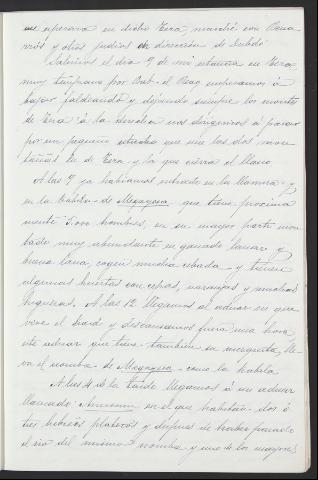 me esperava en dicho Tera, marché con Bena-
rrós y otros judios en direccion de Dubdú
Salimos el dia 9 de mi estancia en Tera
muy temprano por Bab-el- y empezamos á
bajar faldeando y dejando siempre los montes
de Tera á la derecha nos dirigimos á pasar
por un pequeño estrecho que une los dos mon-
tañas la de Tera y la que cierra el llano
A las 9 ya habiamos entrado en la llanura y
en la kabila de Magayesa que tiene proxima
mente 5.000 hombres, es en mayor parte mon
tañosa muy abundante en ganado lanar y
buena lana, cogen mucha cebada y tienen
algunas huertas con cepas, naranjos y muchas
higueras. A las 12 llegamos al aduar en que
vive el kaid y descansamos fuera una hora
este aduar que tiene tambien su mezquita, lle-
va el nombre de Magayesa como la kabila
A las 4 de la tarde llegamos á un aduar
llamado en el que habitan dos ó
tres hebreos plateros y despues de haber pasado
el rio del mismo nombre y uno de los mayores